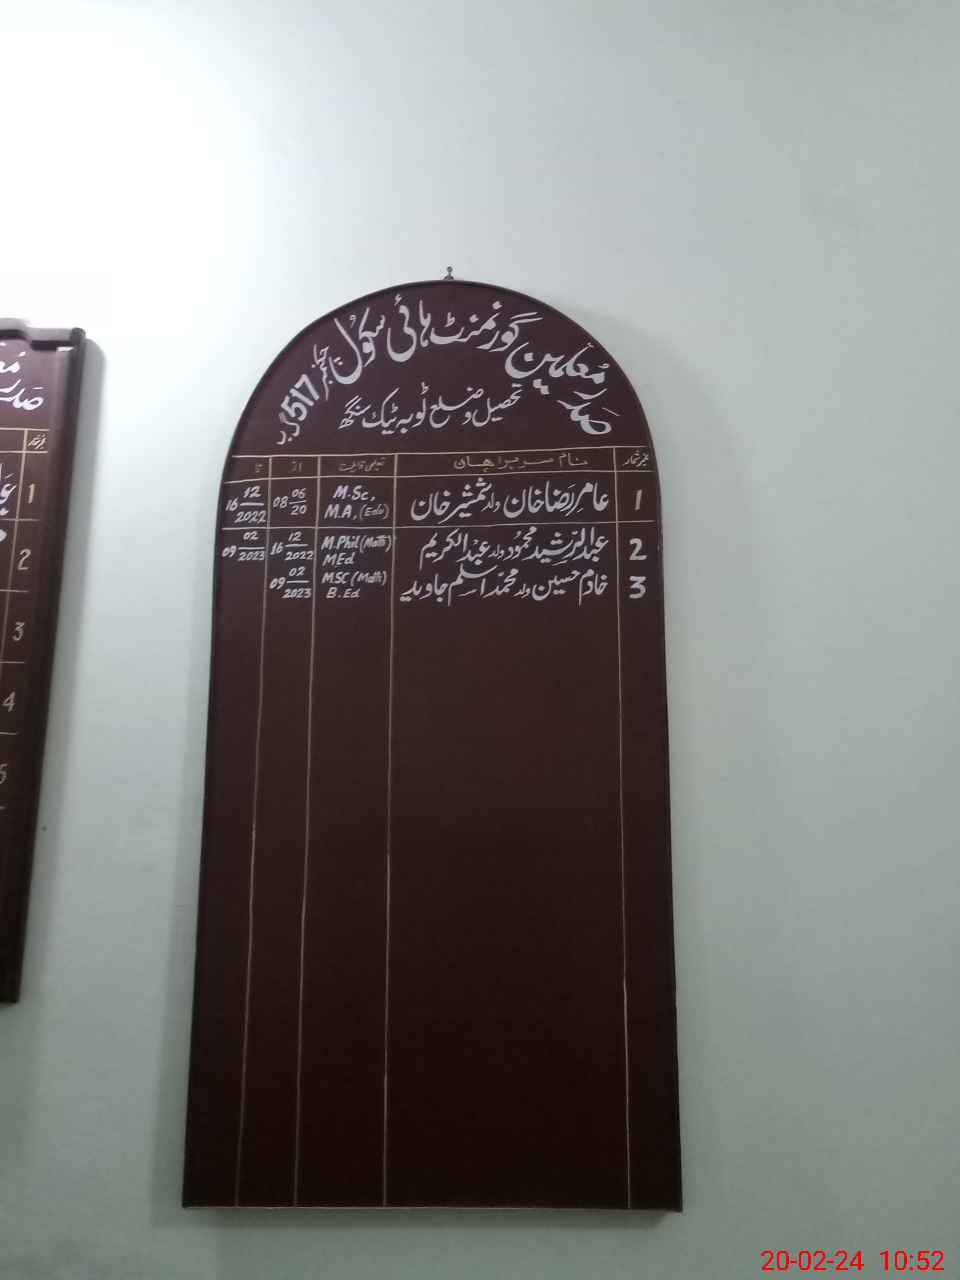 صدر معلمین گورنمنٹ ہائی سکول چکنمبر 517 گ ب
تحصیل و ضلع ٹوبہ ٹیک سنگھ
نمبر شمار نام سربراہان تعلیمی قابلیت از تا
1 عامر رضا خان ولد شمشیر خان M.Sc, M.A, (Edu) 08 06/20 16 12/2022
2 عبدالرشید محمود ولد عبدالکریم M.Phil (Math) MEd 16 12/2022 09 02/2023
3 خادم حسین ولد محمد اسلم جاوید MSC (Math) B.Ed 09 02/2023
صدر
نمبر شمار
1
2
3
4
5
20-02-24 10:52